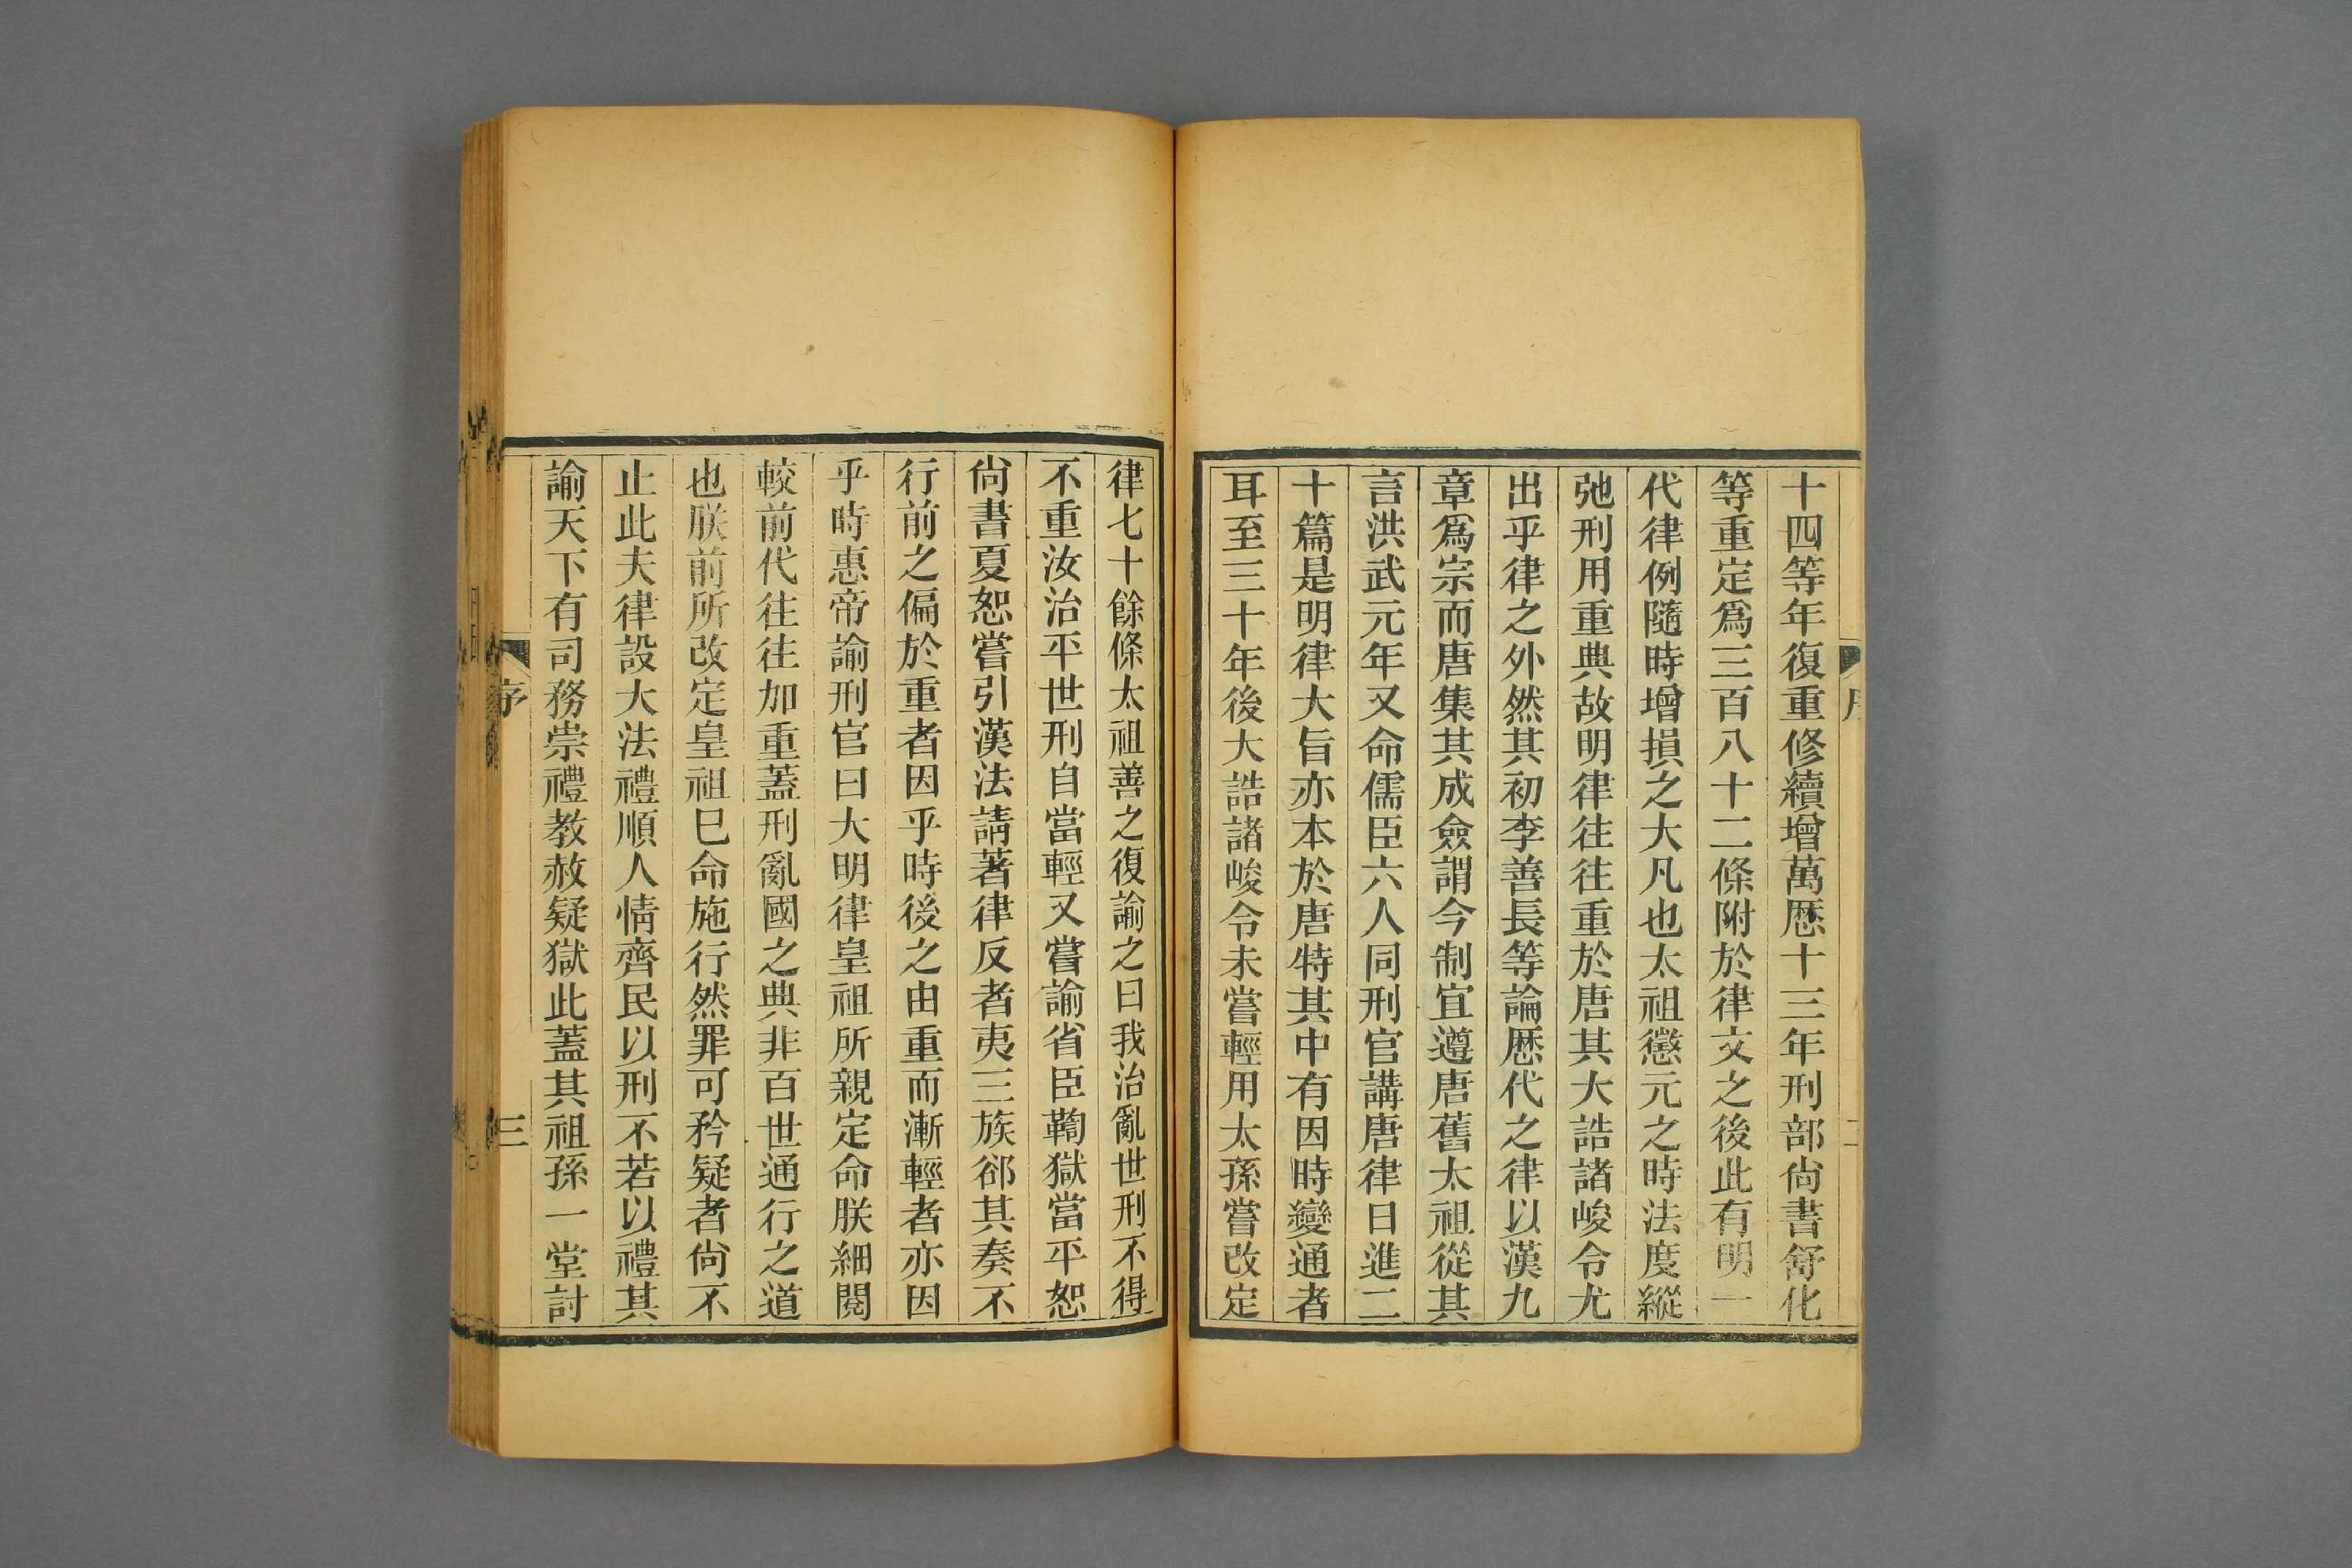 十四等年復重修續增萬厯十三年刑部尙書舒化
等重定爲三百八十二條附於律文之後此有明一
代律例隨時增損之大凡也太祖懲元之時法度縱
弛刑用重典故明律往往重於唐其大誥諸峻令尤
出乎律之外然其初李善長等論厯代之律以漢九
章爲宗而唐集其成僉謂今制宜遵唐舊太祖從其
言洪武元年又命儒臣六人同刑官講唐律日進二
十篇是明律大旨亦本於唐特其中有因時變通者
耳至三十年後大誥諸峻令未嘗輕用太孫嘗改定
律七十餘條太祖善之復諭之曰我治亂世刑不得
不重汝治平世刑自當輕又嘗諭省臣鞫獄當平恕
尙書夏恕嘗引漢法請著律反者夷三族郤其奏不
行前之偏於重者因乎時後之由重而漸輕者亦因
乎時惠帝諭刑官曰大明律皇祖所親定命朕細閱
較前代往往加重蓋刑亂國之典非百世通行之道
也朕前所改定皇祖已命施行然罪可矜疑者尙不
止此夫律設大法禮順人情齊民以刑不若以禮其
諭天下有司務崇禮教赦疑獄此蓋其祖孫一堂討
序
三